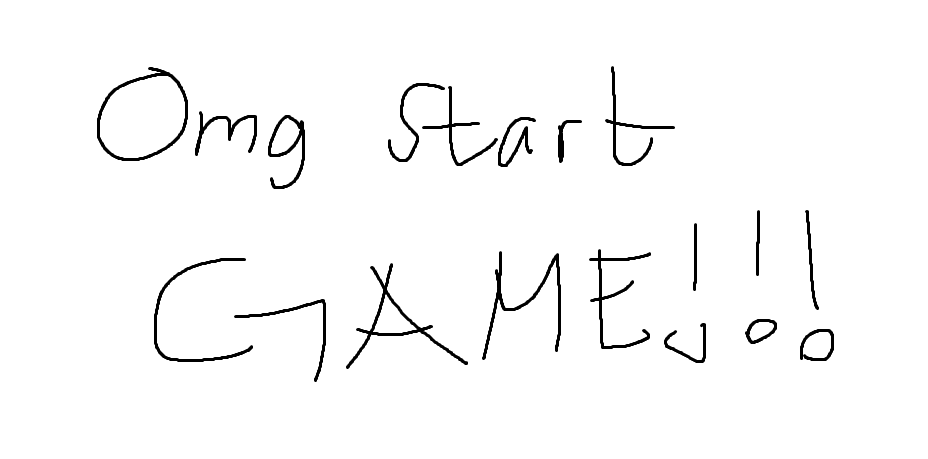 Omg Start
GAME!!!